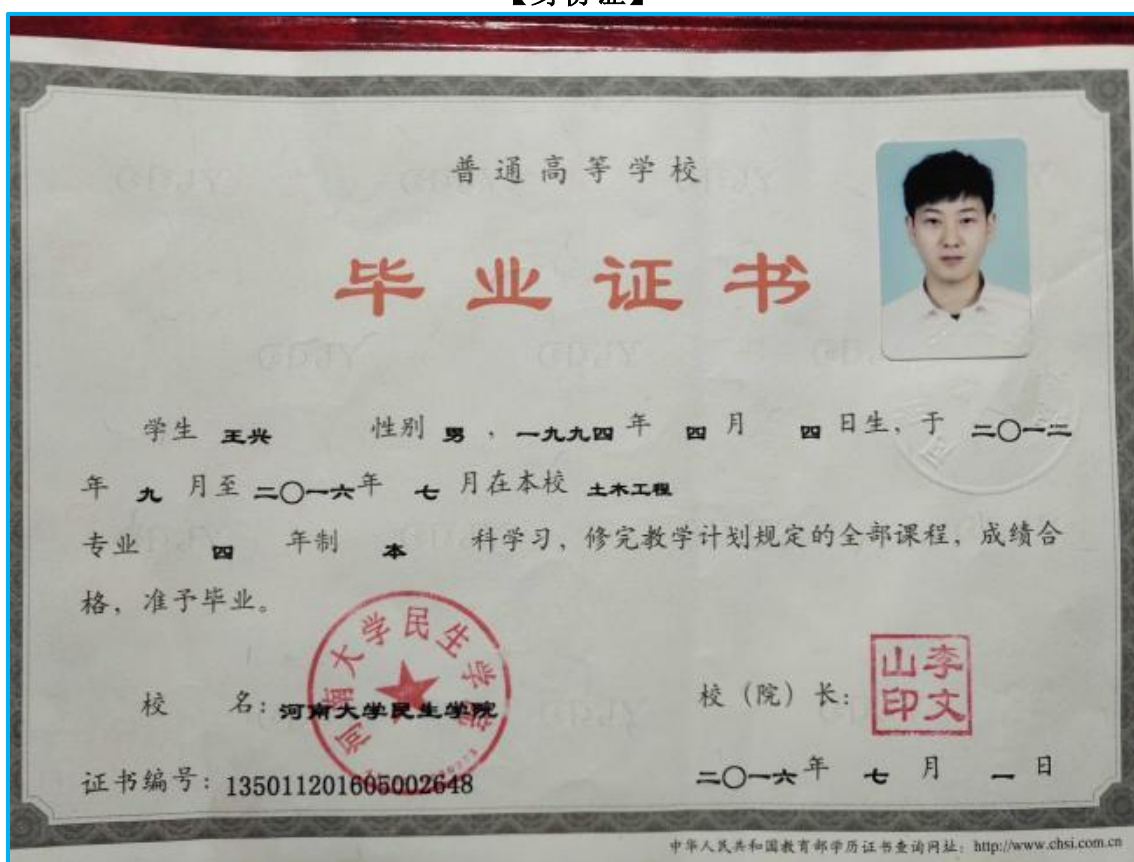 【身份证】
普通高等学校
毕业证书
学生 王兴 性别 男 ，一九九四 年 四 月 四 日生，于 二〇一二
年 九 月至 二〇一六 年 七 月在本校 土木工程
专业 四 年制 本 科学习，修完教学计划规定的全部课程，成绩合
格，准予毕业。
河南大学民生学院
校 名：河南大学民生学院
校（院）长：
李文山印
证书编号：135011201605002648
二〇一六 年 七 月 一 日
中华人民共和国教育部学历证书查询网址：http://www.chsi.com.cn